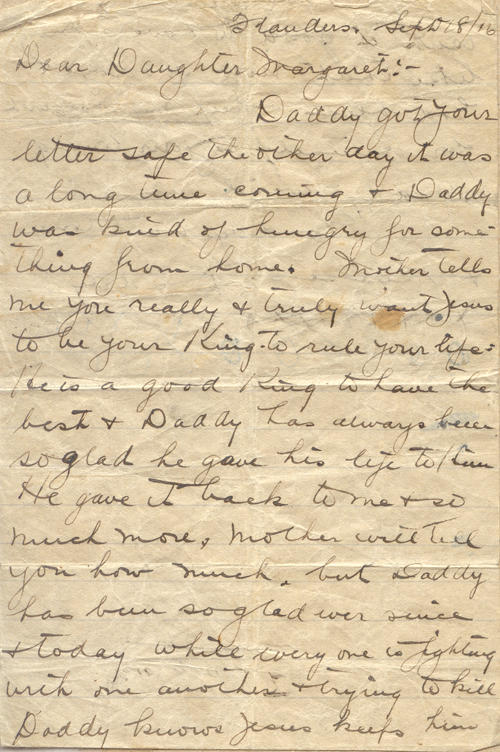 Flanders. Sept 18/16
Dear Daughter Margaret:-
Daddy got your
letter safe the other day it was
a long time coming & Daddy
was kind of hungry for some-
thing from home. Mother tells
me you really & truly want Jesus
to be your King-to rule your life-
He is a good King to have the
best & Daddy has always been
so glad he gave his life to Him
He gave it back to me & so
much more, Mother will tell
you how much, but Daddy
has been so glad ever since
& today while every one is fighting
with one another & trying to kill
Daddy knows Jesus keeps him